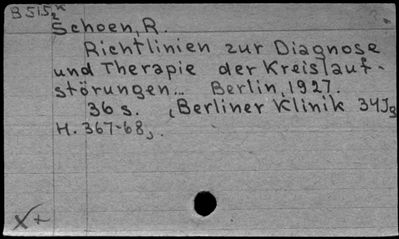 B 515
Schoen, R.
Richtlinien zur Diagnose
und Therapie der Kreislauf-
störungen... Berlin, 1927.
36 S. (Berliner Klinik 34Jg
H. 367-68,.
X+